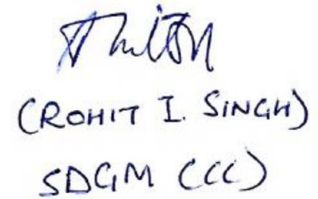 (ROHIT I. SINGH)
SDGM (CC)